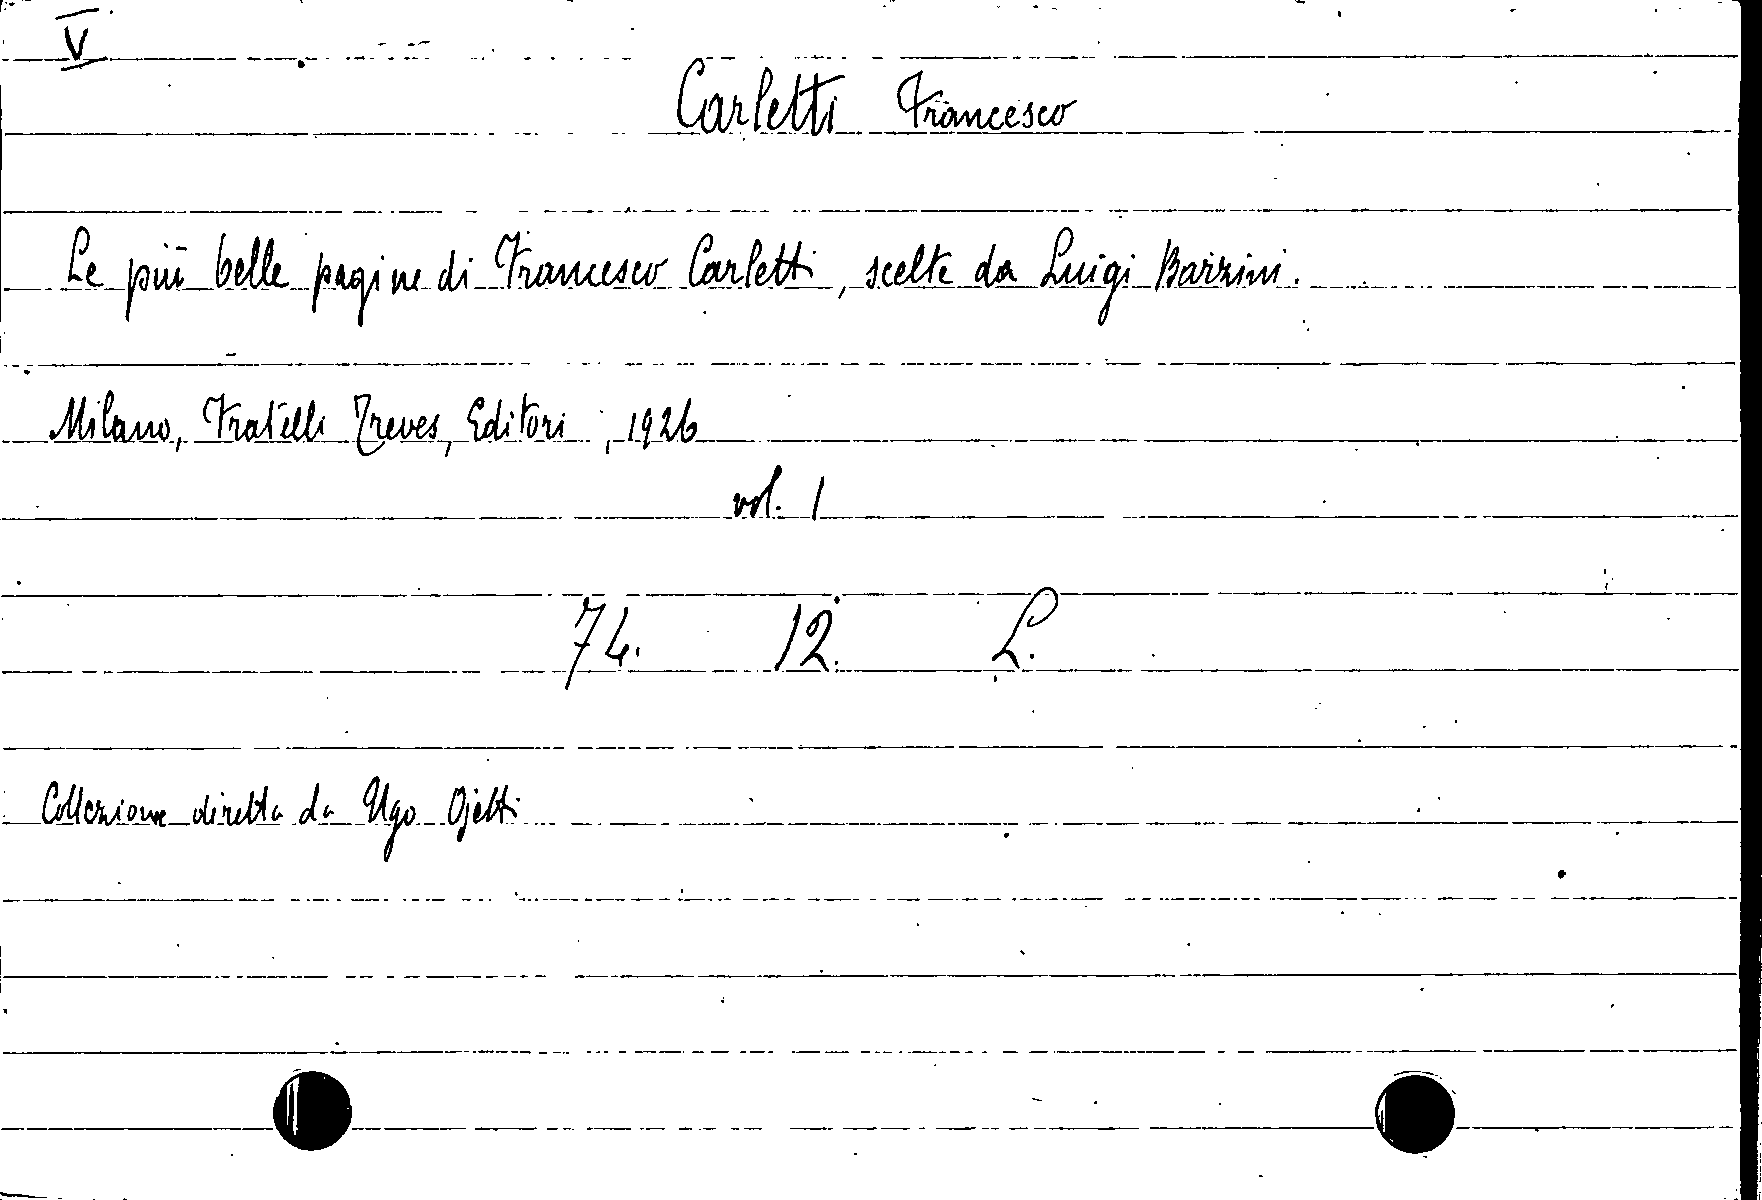 V
Carletti Francesco
Le più belle pagine di Francesco Carletti, scelte da Luigi Barzini.
Milano, Fratelli Treves, Editori, 1926
vol. 1
74. 12. L.
Collezione diretta da Ugo Ojetti